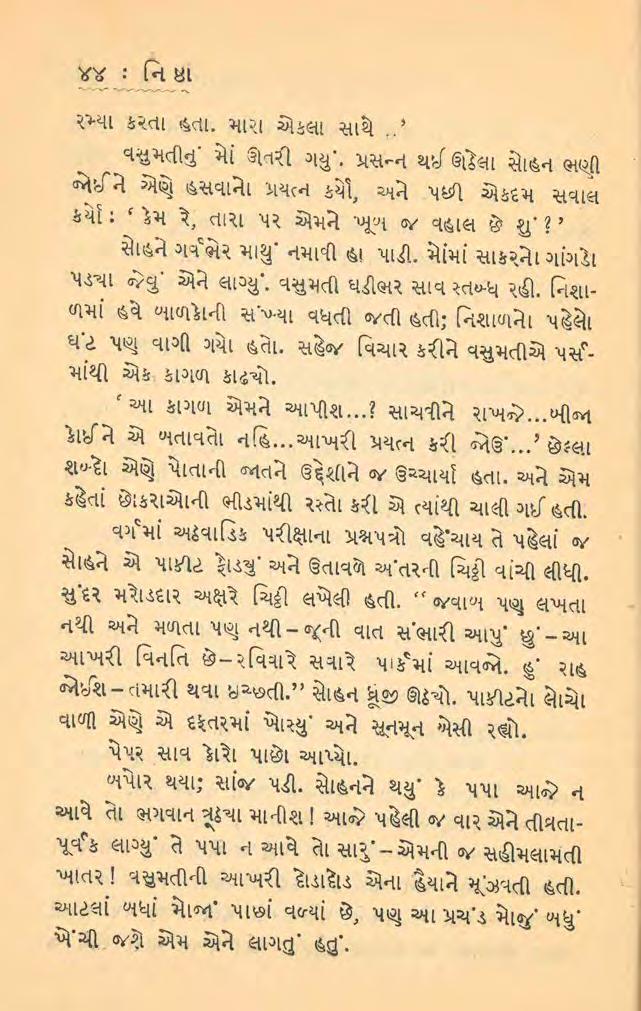 ૪૪ : નિષ્ઠા
રમ્યા કરતા હતા. મારા એકલા સાથે ..’
વસુમતીનું મોં ઊતરી ગયું. પ્રસન્ન થઈ ઊઠેલા સોહન ભણી
જોઈને એણે હસવાનો પ્રયત્ન કર્યો, અને પછી એકદમ સવાલ
કર્યો : ‘ કેમ રે, તારા પર એમને ખૂબ જ વહાલ છે શું ? ’
સોહને ગર્વભેર માથું નમાવી હા પાડી. મોંમાં સાકરનો ગાંગડો
પડ્યા જેવું એને લાગ્યું. વસુમતી ઘડીભર સાવ સ્તબ્ધ રહી. નિશા-
ળમાં હવે બાળકોની સંખ્યા વધતી જતી હતી; નિશાળનો પહેલો
ઘંટ પણ વાગી ગયો હતો. સહેજ વિચાર કરીને વસુમતીએ પર્સ-
માંથી એક કાગળ કાઢ્યો.
‘ આ કાગળ એમને આપીશ...? સાચવીને રાખજે...બીજા
કોઈને એ બતાવતો નહિ...આખરી પ્રયત્ન કરી જોઉં...’ છેલ્લા
શબ્દો એણે પોતાની જાતને ઉદ્દેશીને જ ઉચ્ચાર્યા હતા. અને એમ
કહેતાં છોકરાઓની ભીડમાંથી રસ્તો કરી એ ત્યાંથી ચાલી ગઈ હતી.
વર્ગમાં અઠવાડિક પરીક્ષાના પ્રશ્નપત્રો વહેંચાય તે પહેલાં જ
સોહને એ પાકીટ ફોડ્યું અને ઉતાવળે અંતરની ચિઠ્ઠી વાંચી લીધી.
સુંદર મરોડદાર અક્ષરે ચિઠ્ઠી લખેલી હતી. “ જવાબ પણ લખતા
નથી અને મળતા પણ નથી – જૂની વાત સંભારી આપું છું – આ
આખરી વિનતિ છે – રવિવારે સવારે પાર્કમાં આવજો. હું રાહ
જોઈશ – તમારી થવા ઇચ્છતી.” સોહન ધ્રૂજી ઊઠ્યો. પાકીટનો લોચો
વાળી એણે એ દફતરમાં ખોસ્યું અને સૂનમૂન બેસી રહ્યો.
પેપર સાવ કોરો પાછો આપ્યો.
બપોર થયા; સાંજ પડી. સોહનને થયું કે પપા આજે ન
આવે તો ભગવાન ત્રૂઠ્યા માનીશ ! આજે પહેલી જ વાર એને તીવ્રતા-
પૂર્વક લાગ્યું તે પપા ન આવે તો સારું – એમની જ સહીસલામતી
ખાતર ! વસુમતીની આખરી દોડાદોડ એના હૈયાને મૂંઝવતી હતી.
આટલાં બધાં મોજાં પાછાં વળ્યાં છે, પણ આ પ્રચંડ મોજું બધું
ખેંચી જશે એમ એને લાગતું હતું.